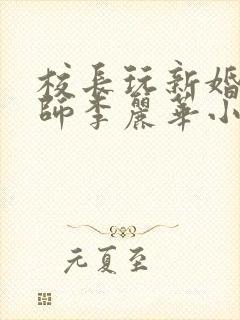 校長玩新婚
師李麗華小
元夏至